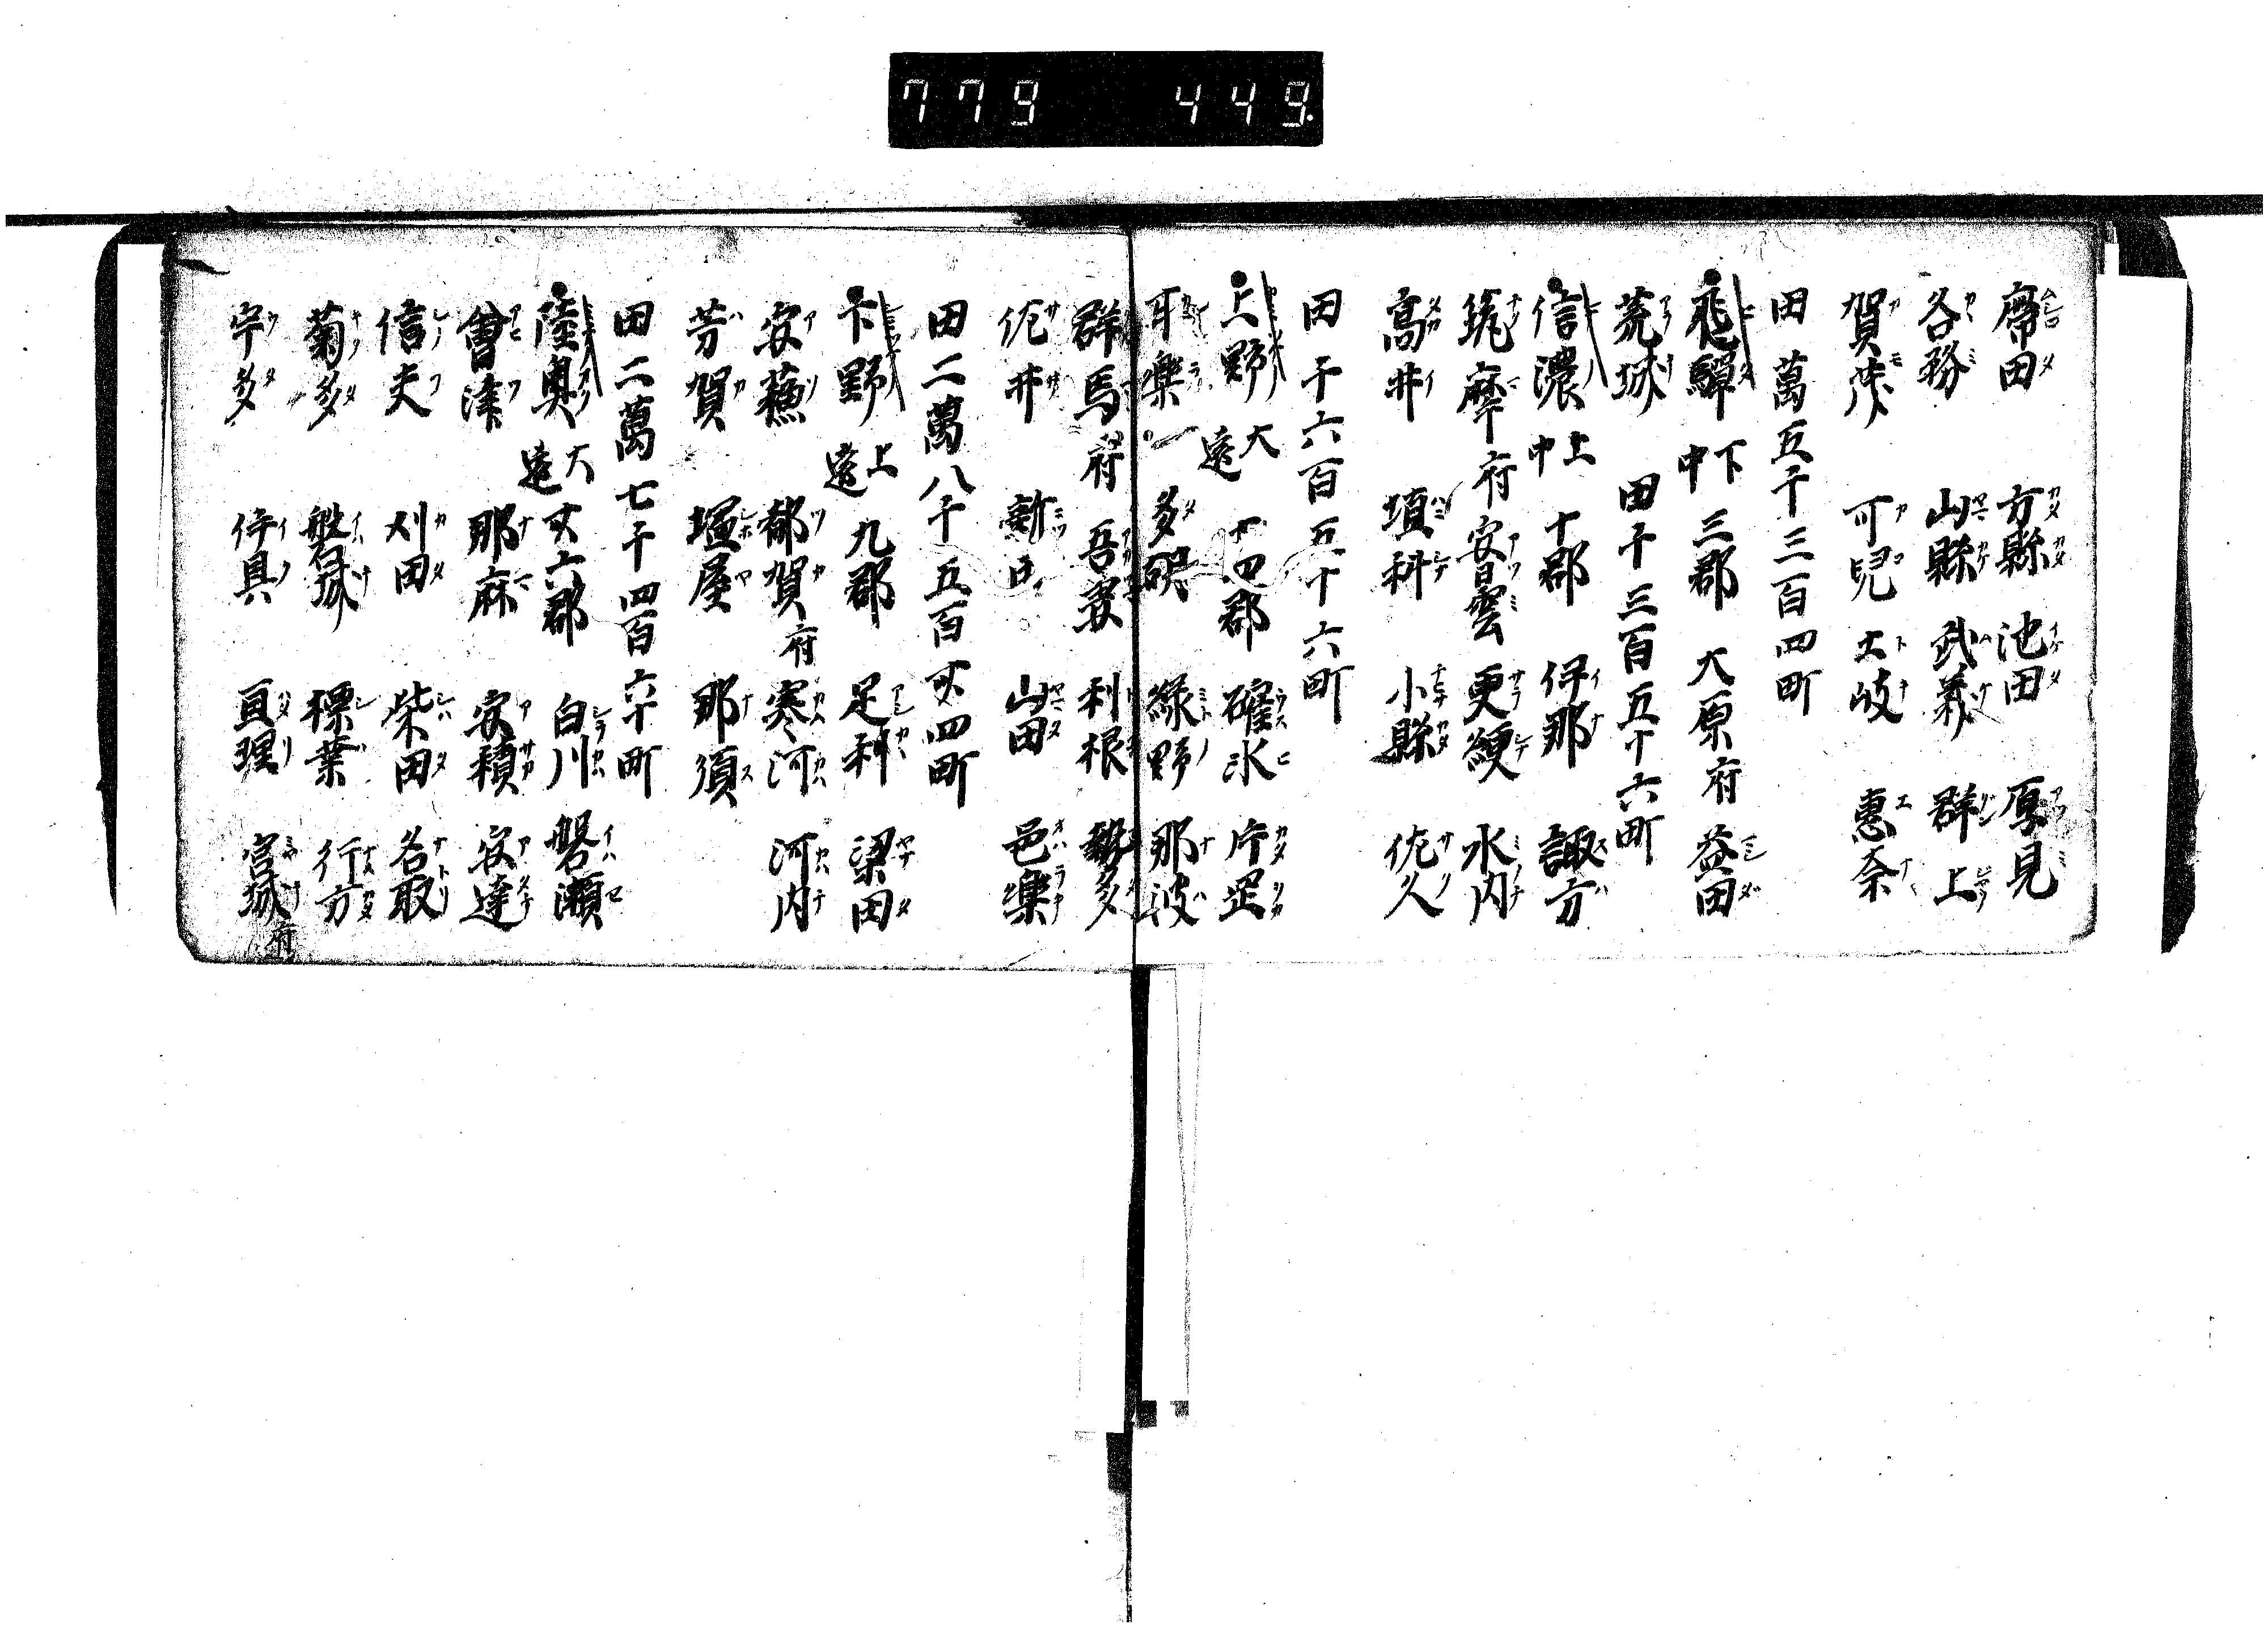 779 449.
席田 方縣 池田 厚見
各務 山縣 武義 群上
賀茂 可兒 土岐 惠奈
田萬五千三百四町
飛驒 下中 三郡 大原府 益田
荒城 田千三百五十六町
信濃 上中 十郡 伊那 諏方
筑摩府 安曇 更級 水内
高井 埴科 小縣 佐久
田千六百五十六町
上野 大遠 十四郡 碓氷 片罡
耳樂 多胡 緑野 那波
群馬府 吾妻 利根 勢多
佐井 新田 山田 邑樂
田二萬八千五百丗四町
下野 上遠 九郡 足利 梁田
安蘇 都賀府 寒河 河内
芳賀 塩屋 那須
田二萬七千四百六十町
陸奥 大遠 丗六郡 白川 磐瀬
會津 那麻 安積 安達
信夫 刈田 柴田 名取
菊多 磐城 標葉 行方
宇多 伊具 亘理 宮城府